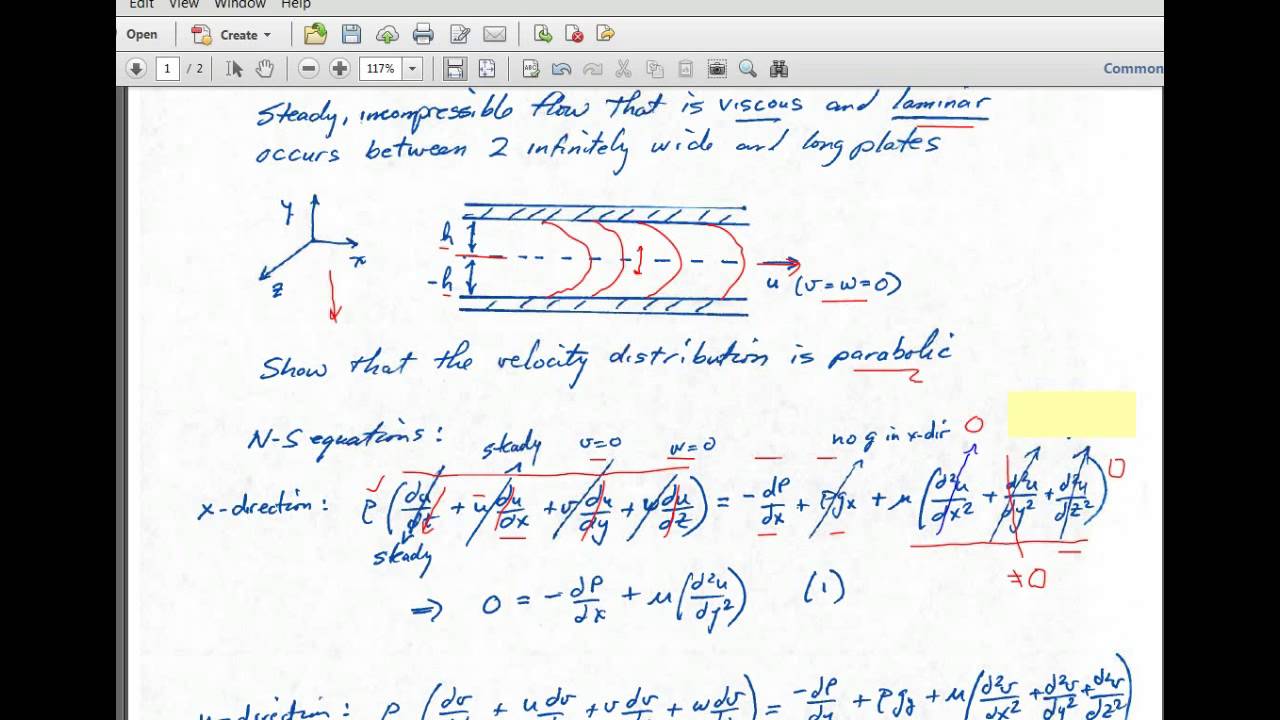 dit View Window Help
Open Create
1 / 2 117% Common
Steady, incompressible flow that is viscous and laminar
occurs between 2 infinitely wide and long plates
y
x
z
h
-h
1
u (v=w=0)
Show that the velocity distribution is parabolic
N-S equations: steady v=0 w=0 no g in x-dir 0
x-direction: ρ(du/dt + u du/dx + v du/dy + w du/dz) = -dP/dx + ρgx + μ(d²u/dx² + d²u/dy² + d²u/dz²) 0
steady
≠0
⇒ 0 = -dP/dx + μ(d²u/dy²) (1)
y-direction: ρ(dv/ + u dv/ + v dv/ + w dv/) = -dP/dy + ρgy + μ(d²v/dx² + d²v/dy² + d²v/dz²)